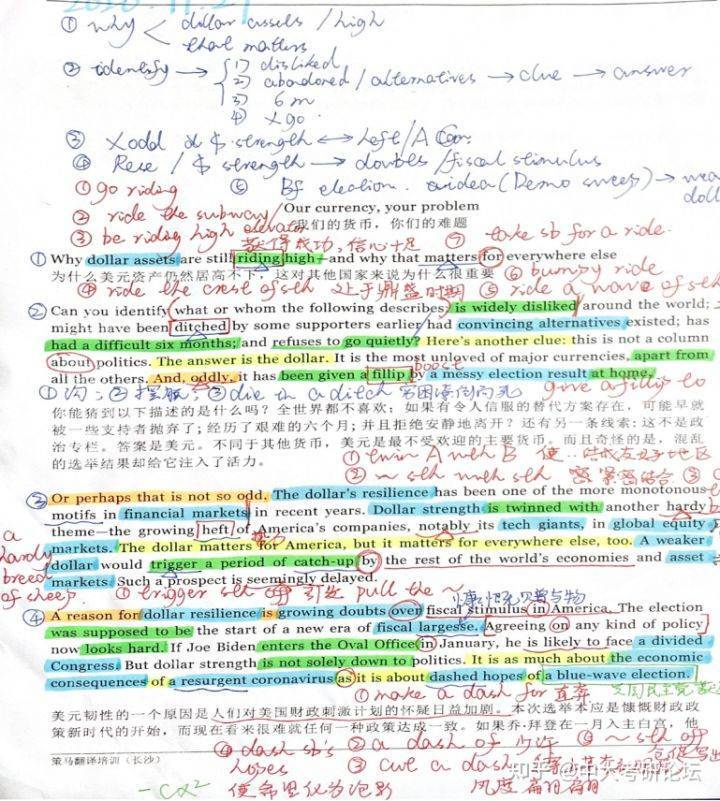 2020.11.21
① why < dollar assets / high
that matters
② identify → 1) disliked
2) abandoned / alternatives → clue → answer
3) 6 m
4) x go
③ X odd $ strength ↔ heft / A Com
④ Rese / $ strength → doubts / fiscal stimulus
① go riding ⑤ Bf election. (Demo sweep) →
② ride the subway / elevator
Our currency, your problem
我们的货币，你们的难题
③ be riding high 获得成功，信心十足 ⑦ take sb for a ride.
① Why dollar assets are still riding high—and why that matters for everywhere else
为什么美元资产仍然居高不下，这对其他国家来说为什么很重要 ⑥ bumpy ride
④ ride the crest of sth 处于鼎盛时期 ⑤ ride a wave of sth
② Can you identify what or whom the following describes: is widely disliked around the world;
might have been ditched by some supporters earlier had convincing alternatives existed; has
had a difficult six months; and refuses to go quietly? Here's another clue: this is not a column
about politics. The answer is the dollar. It is the most unloved of major currencies, apart from
boost
all the others. And, oddly, it has been given a fillip by a messy election result at home.
① 沟; ② ③ die in a ditch give a fillip to
你能猜到以下描述的是什么吗？全世界都不喜欢；如果有令人信服的替代方案存在，可能早就
被一些支持者抛弃了；经历了艰难的六个月；并且拒绝安静地离开？还有另一条线索：这不是政
治专栏。答案是美元。不同于其他货币，美元是最不受欢迎的主要货币。而且奇怪的是，混乱
的选举结果却给它注入了活力。
① twin A with B 使
② ~ sth with sth 紧密结合 ③
③ Or perhaps that is not so odd. The dollar's resilience has been one of the more monotonous
motifs in financial markets in recent years. Dollar strength is twinned with another hardy
theme—the growing heft of America's companies, notably its tech giants, in global equity
markets. The dollar matters for America, but it matters for everywhere else, too. A weaker
dollar would trigger a period of catch-up by the rest of the world's economies and asset
markets. Such a prospect is seemingly delayed.
a hardy breed of sheep.
① trigger sth 引起 pull the ~
④ A reason for dollar resilience is growing doubts over fiscal stimulus in America. The election
was supposed to be the start of a new era of fiscal largesse. Agreeing on any kind of policy
now looks hard. If Joe Biden enters the Oval Office in January, he is likely to face a divided
Congress. But dollar strength is not solely down to politics. It is as much about the economic
consequences of a resurgent coronavirus as it is about dashed hopes of a blue-wave election.
① make a dash for 直奔
美元韧性的一个原因是人们对美国财政刺激计划的怀疑日益加剧。本次选举本应是慷慨财政政
策新时代的开始，而现在看来很难就任何一种政策达成一致。如果乔·拜登在一月入主白宫，他
④ dash sb's hopes 使希望化为泡影 ② a dash of 少许 ⑤ ~ sth off
③ cut a dash
策马翻译培训（长沙）
知乎 @中大考研论坛